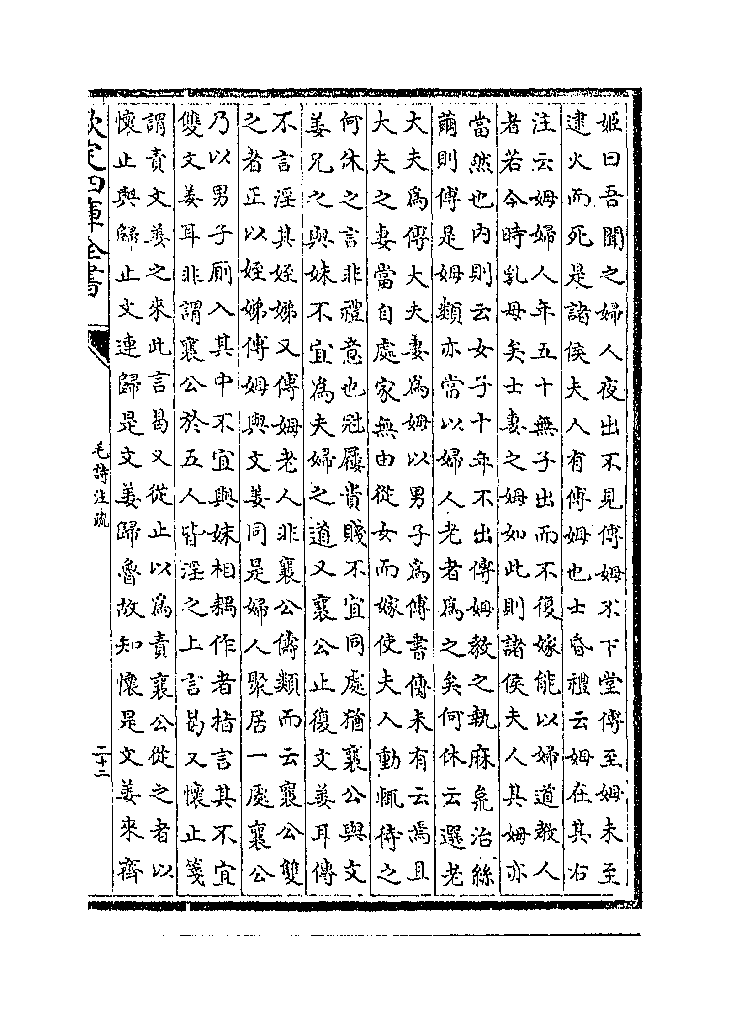 姬曰吾聞之婦人夜出不見傅姆不下堂傅至姆未至
逮火而死是諸侯夫人有傅姆也士昏禮云姆在其右
注云姆婦人年五十無子出而不復嫁能以婦道教人
者若今時乳母矣士妻之姆如此則諸侯夫人其姆亦
當然也内則云女子十年不出傅姆教之執麻枲治絲
繭則傅是姆類亦當以婦人老者為之矣何休云選老
大夫為傅大夫妻為姆以男子為傅書傳未有云焉且
大夫之妻當自處家無由從女而嫁使夫人動輒待之
何休之言非禮意也冠屨貴賤不宜同處猶襄公與文
姜兄之與妹不宜為夫婦之道又襄公止復文姜耳傳
不言淫其姪娣又傅姆老人非襄公儔類而云襄公雙
之者正以姪娣傅姆與文姜同是婦人聚居一處襄公
乃以男子厠入其中不宜與妹相耦作者指言其不宜
雙文姜耳非謂襄公於五人皆淫之上言曷又懷止箋
謂責文姜之來此言曷又從止以為責襄公從之者以
懷止與歸止文連歸是文姜歸魯故知懷是文姜來齊
欽定四庫全書
毛詩注疏
二十二